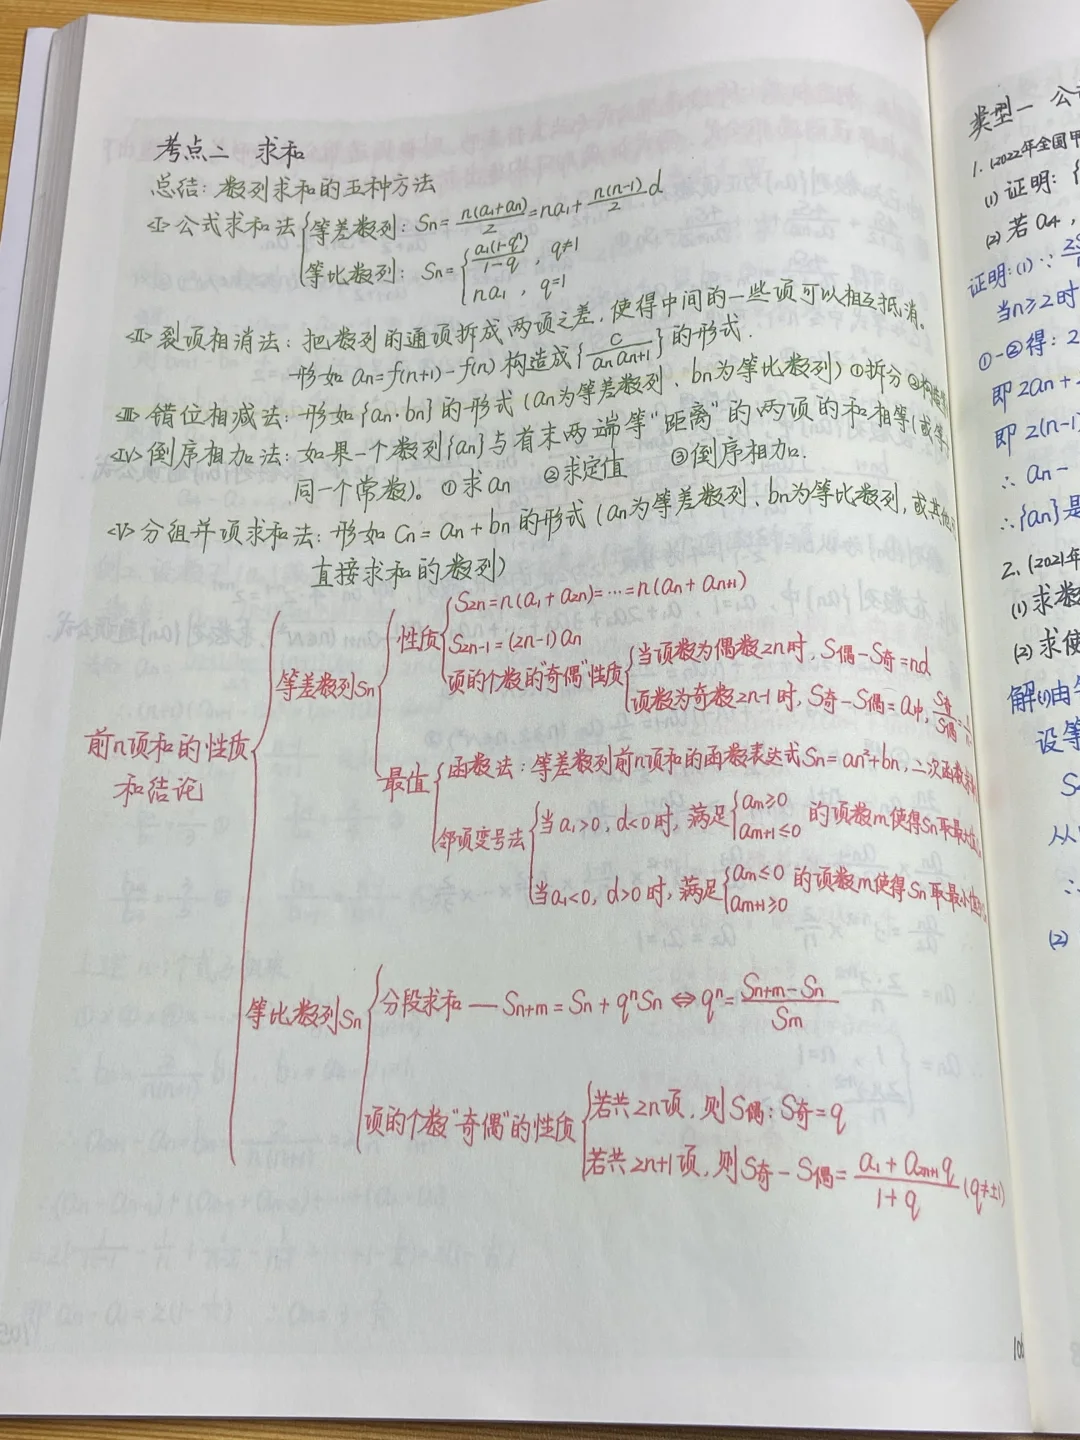 考点二 求和
总结:数列求和的五种方法
<Ⅰ>公式求和法{等差数列:Sn=n(a₁+an)/2=na₁+n(n-1)/2 d
等比数列:Sn={a₁(1-qⁿ)/1-q,q≠1
na₁,q=1
<Ⅱ>裂项相消法:把数列的通项拆成两项之差,使得中间的一些项可以相互抵消。
形如an=f(n+1)-f(n)构造成{c/an an+1}的形式.
<Ⅲ>错位相减法:形如{an·bn}的形式(an为等差数列、bn为等比数列)①拆分②
<Ⅳ>倒序相加法:如果一个数列{an}与首末两端等“距离”的两项的和相等(或等
同一个常数)。①求an ②求定值 ③倒序相加.
<Ⅴ>分组并项求和法:形如Cn=an+bn的形式(an为等差数列、bn为等比数列,或其他
直接求和的数列)
前n项和的性质
和结论
等差数列Sn
性质
S2n=n(a₁+a2n)=…=n(an+an+1)
S2n-1=(2n-1)an
项的个数的“奇偶”性质
当项数为偶数2n时,S偶-S奇=nd
项数为奇数2n-1时,S奇-S偶=a中,S奇/S偶=
最值
函数法:等差数列前n项和的函数表达式Sn=an²+bn,二次函数
邻项变号法
当a₁>0,d<0时,满足{am≥0 am+1≤0 的项数m使得Sn取最大值
当a₁<0,d>0时,满足{am≤0 am+1≥0 的项数m使得Sn取最小值
等比数列Sn
分段求和—Sn+m=Sn+qⁿSn⇔qⁿ=Sn+m-Sn/Sm
项的个数“奇偶”的性质
若共2n项,则S偶:S奇=q
若共2n+1项,则S奇-S偶=a₁+a2n+1q/1+q(q≠±1)
类型一 公
1.(2022年全国甲
(1)证明:{
(2)若a4,
证明:(1)∵2S
当n≥2时
①-②得:2
即2an+
即2(n-1)
∴an-
∴{an}是
2.(2021年
(1)求数
(2)求使
解(1)由
设等
S
从
∴
(2)